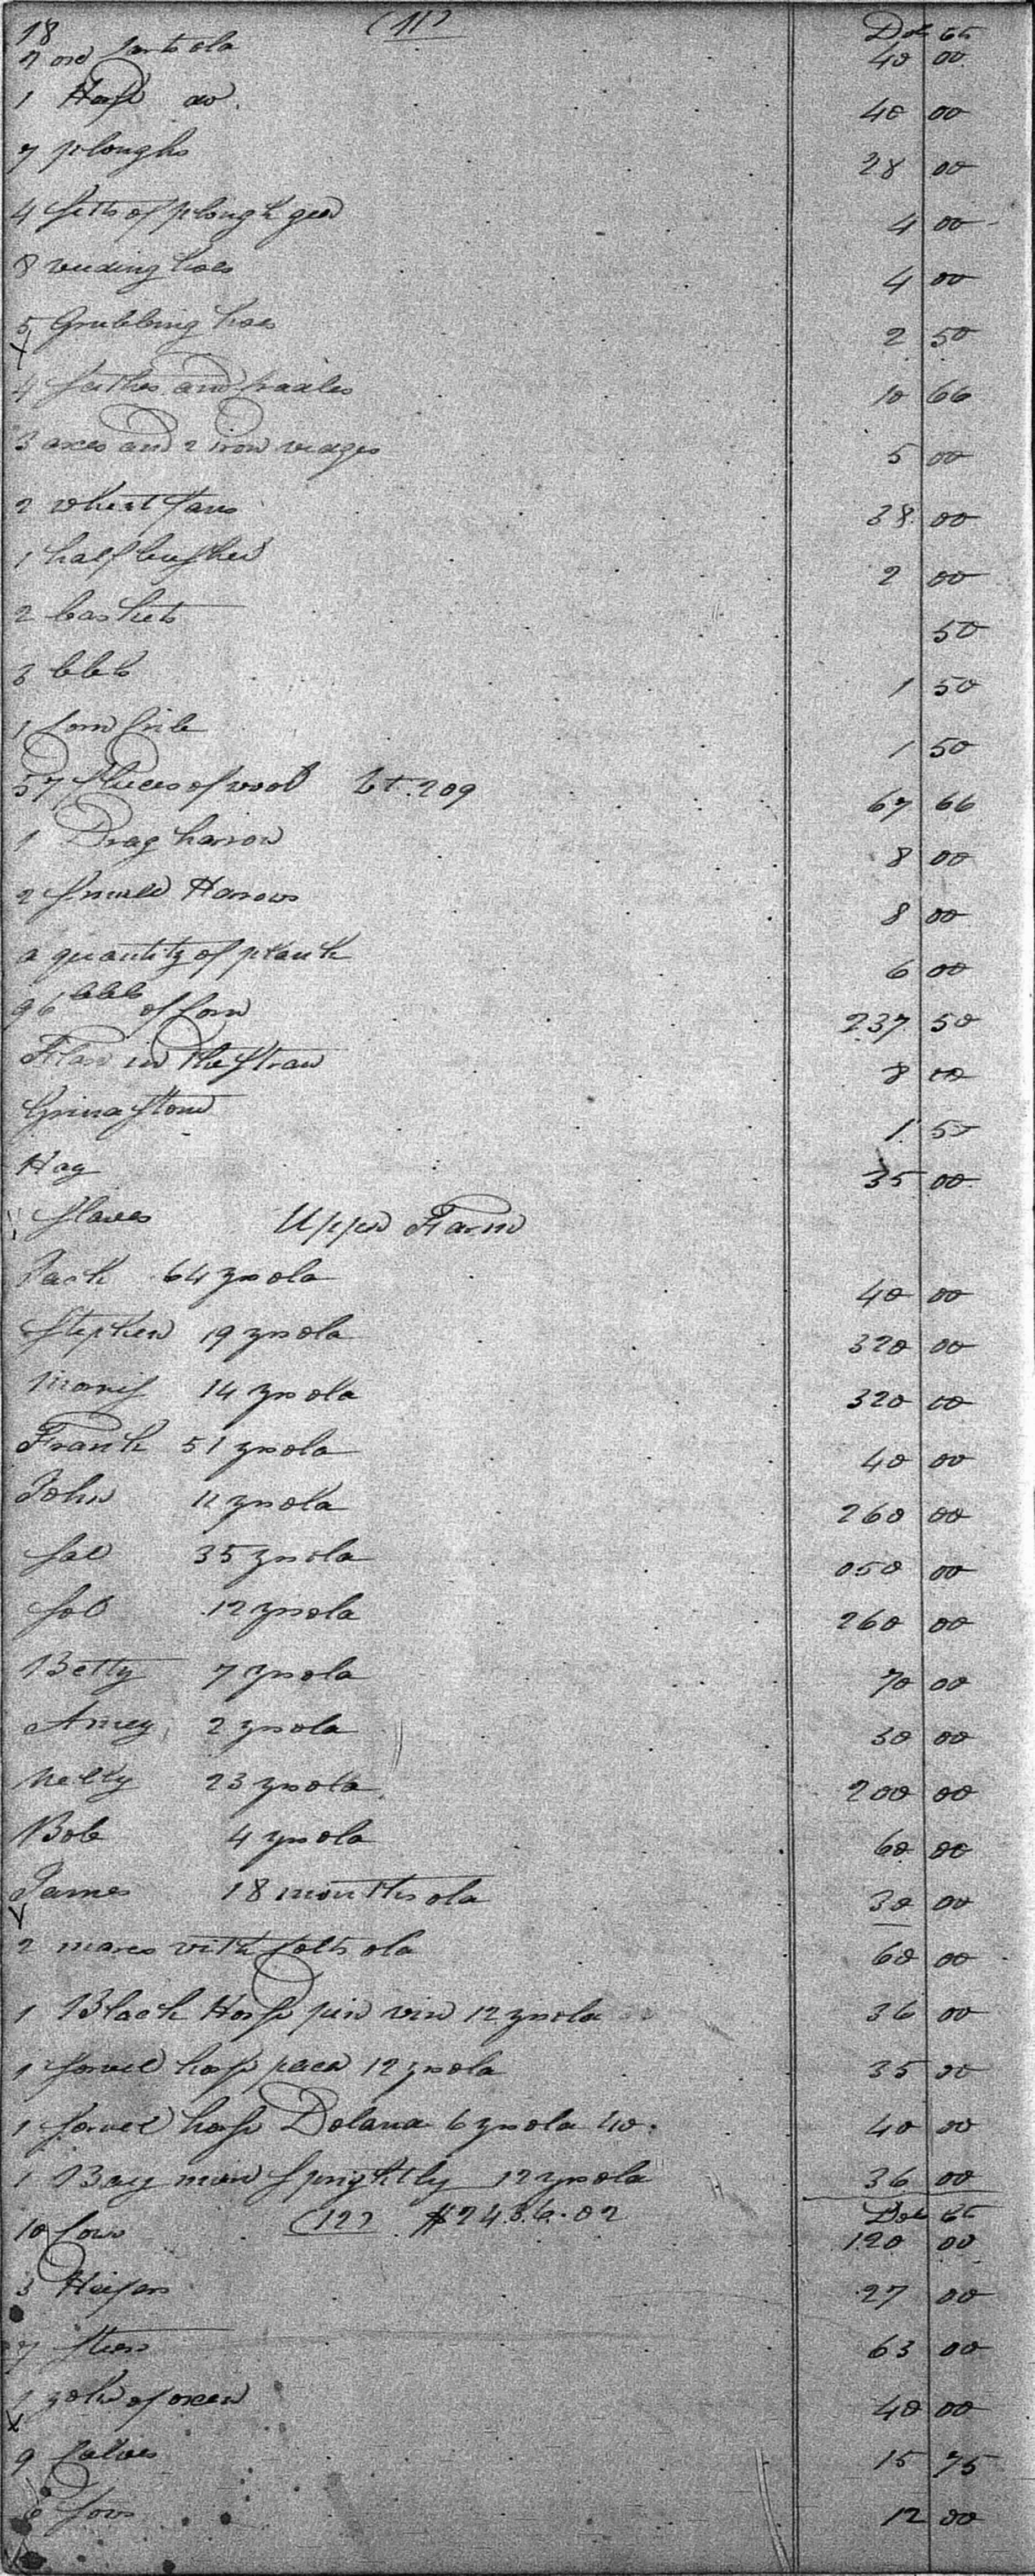 18 (11) Dols cts
2 ox Carts old 40 00
1 Horse do. 40 00
7 ploughs 28 00
4 setts of plough gear 4 00
8 weeding hoes 4 00
5 Grubbing hoes 2 50
4 sithes and cradles 10 66
3 axes and 2 iron wedges 5 00
2 wheat fans 38 00
1 half bushel 2 00
2 baskets 50
3 bbls 1 50
1 Corn Crib 1 50
57 fleeces of wool wt. 209 67 66
1 Drag harrow 8 00
2 small Harrows 8 00
a quantity of plank 6 00
96 bbls of Corn 237 50
Flax in the straw 8 00
Grindstone 1 50
Hay 35 00
Slaves Upper Farm
Jack 64 yrs old 40 00
Stephen 19 yrs old 320 00
Moris 14 yrs old 320 00
Frank 51 yrs old 40 00
John 11 yrs old 260 00
Sal 35 yrs old 050 00
Sol 12 yrs old 260 00
Betty 7 yrs old 70 00
Amey 2 yrs old 30 00
Nelly 23 yrs old 200 00
Bob 4 yrs old 60 00
James 18 months old 30 00
2 mares with Colts old 60 00
1 Black Horse 12 yrs old 36 00
1 Sorrel horse 12 yrs old 35 00
1 Sorrel horse 6 yrs old 40. 40 00
1 Bay mare Sprightly 12 yrs old 36 00
(12) $2436.02 Dols cts
10 Cows 120 00
3 Heifers 27 00
7 steers 63 00
1 yoke of oxen 40 00
9 Calves 15 75
6 sows 12 00